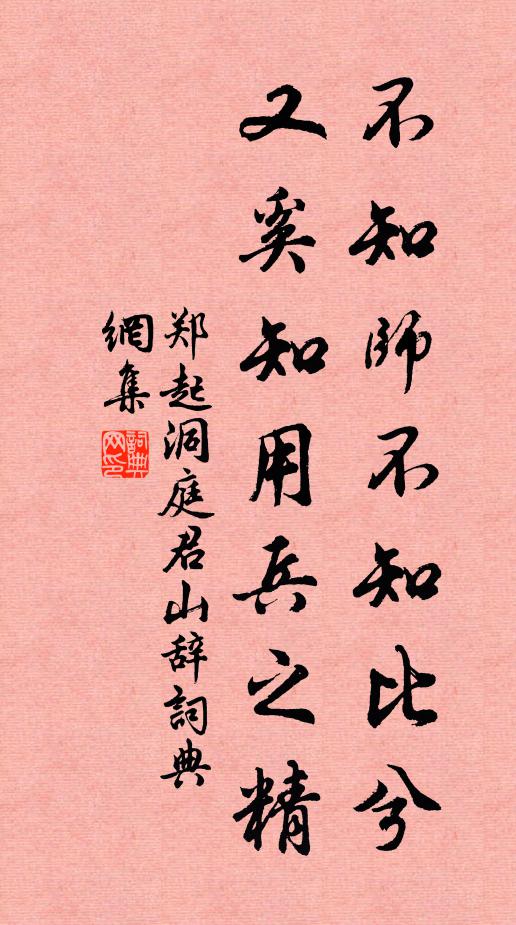 不知師不知比兮
又奚知用兵之精
郑起洞庭君山辞詞典
網集
詞典網印